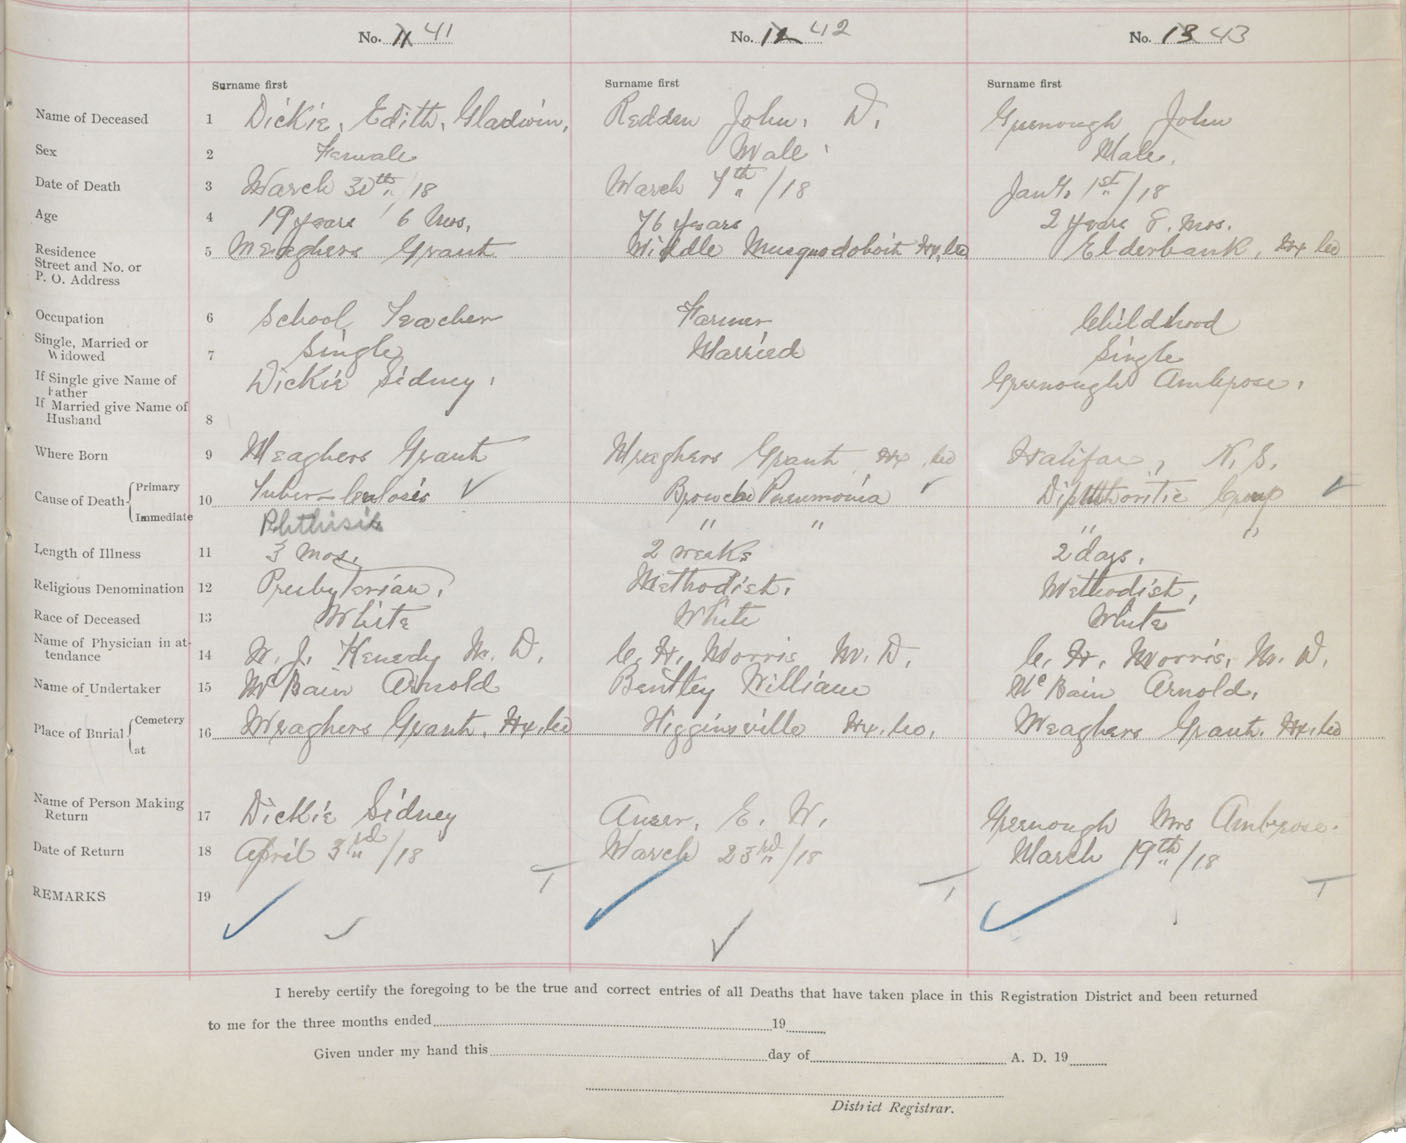 No. 11 41 No. 12 42 No. 13 43
Surname first Surname first Surname first
Name of Deceased 1 Dickie, Edith, Gladwin, Redden John, D. Greenough John
Sex 2 Female Male Male.
Date of Death 3 March 30th /18 March 7th /18 Jany. 1st /18
Age 4 19 years 6 Mos. 76 years 2 years 8. mos.
Residence 5 Meaghers Grant Middle Musquodoboit Hx, Co Elderbank, Hx Co
Street and No. or
P. O. Address
Occupation 6 School Teacher Farmer Childhood
Single, Married or
Widowed 7 Single Married Single
If Single give Name of
Father Dickie Sidney, Greenough Ambrose,
If Married give Name of
Husband 8
Where Born 9 Meaghers Grant Meaghers Grant, Hx, Co Halifax, N. S.
Cause of Death Primary 10 Tuberculosis ✓ Pneumonia ✓ Diphtheritic Croup ✓
Immediate Phthisis " " " "
Length of Illness 11 3 mos. 2 weeks 2 days.
Religious Denomination 12 Presbyterian, Methodist, Methodist,
Race of Deceased 13 White White White
Name of Physician in at-
tendance 14 J. Kenedy M. D. C. H. Morris M. D. C. H. Morris, M. D.
Name of Undertaker 15 McBain Arnold Bentley William McBain Arnold,
Place of Burial Cemetery 16 Meaghers Grant, Hx, Co Higginsville Hx, Co. Meaghers Grant, Hx, Co
at
Name of Person Making
Return 17 Dickie Sidney E. W. Greenough Mrs Ambrose.
Date of Return 18 April 3rd /18 March 23rd /18 March 19th /18
REMARKS 19
I hereby certify the foregoing to be the true and correct entries of all Deaths that have taken place in this Registration District and been returned
to me for the three months ended 19
Given under my hand this day of A. D. 19
District Registrar.